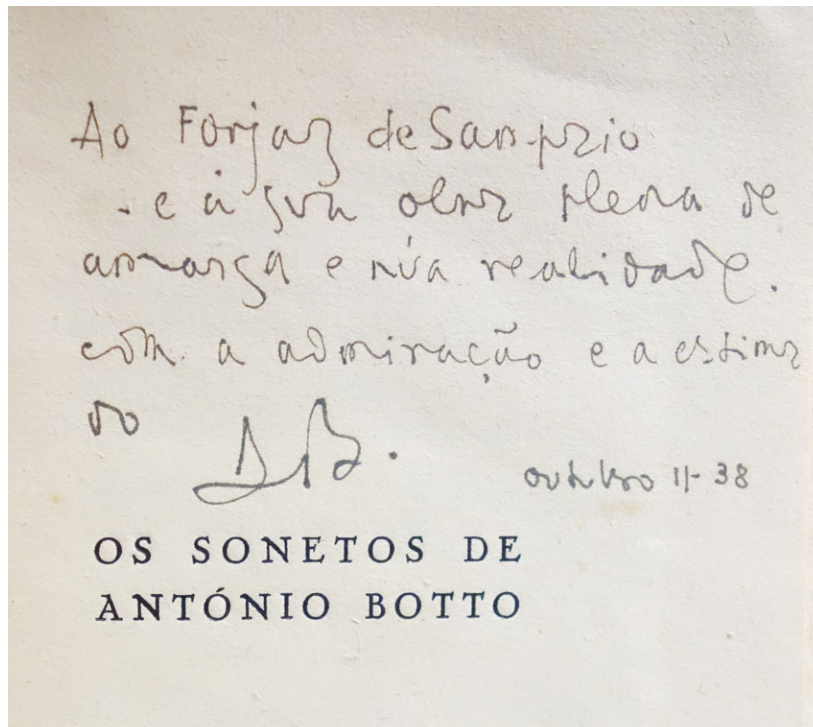 Ao Forjaz de Sampaio
- e à sua obra plena de
amarga e núa realidade.
com a admiração e a estima
do AB.
outubro 11-38
OS SONETOS DE
ANTÓNIO BOTTO